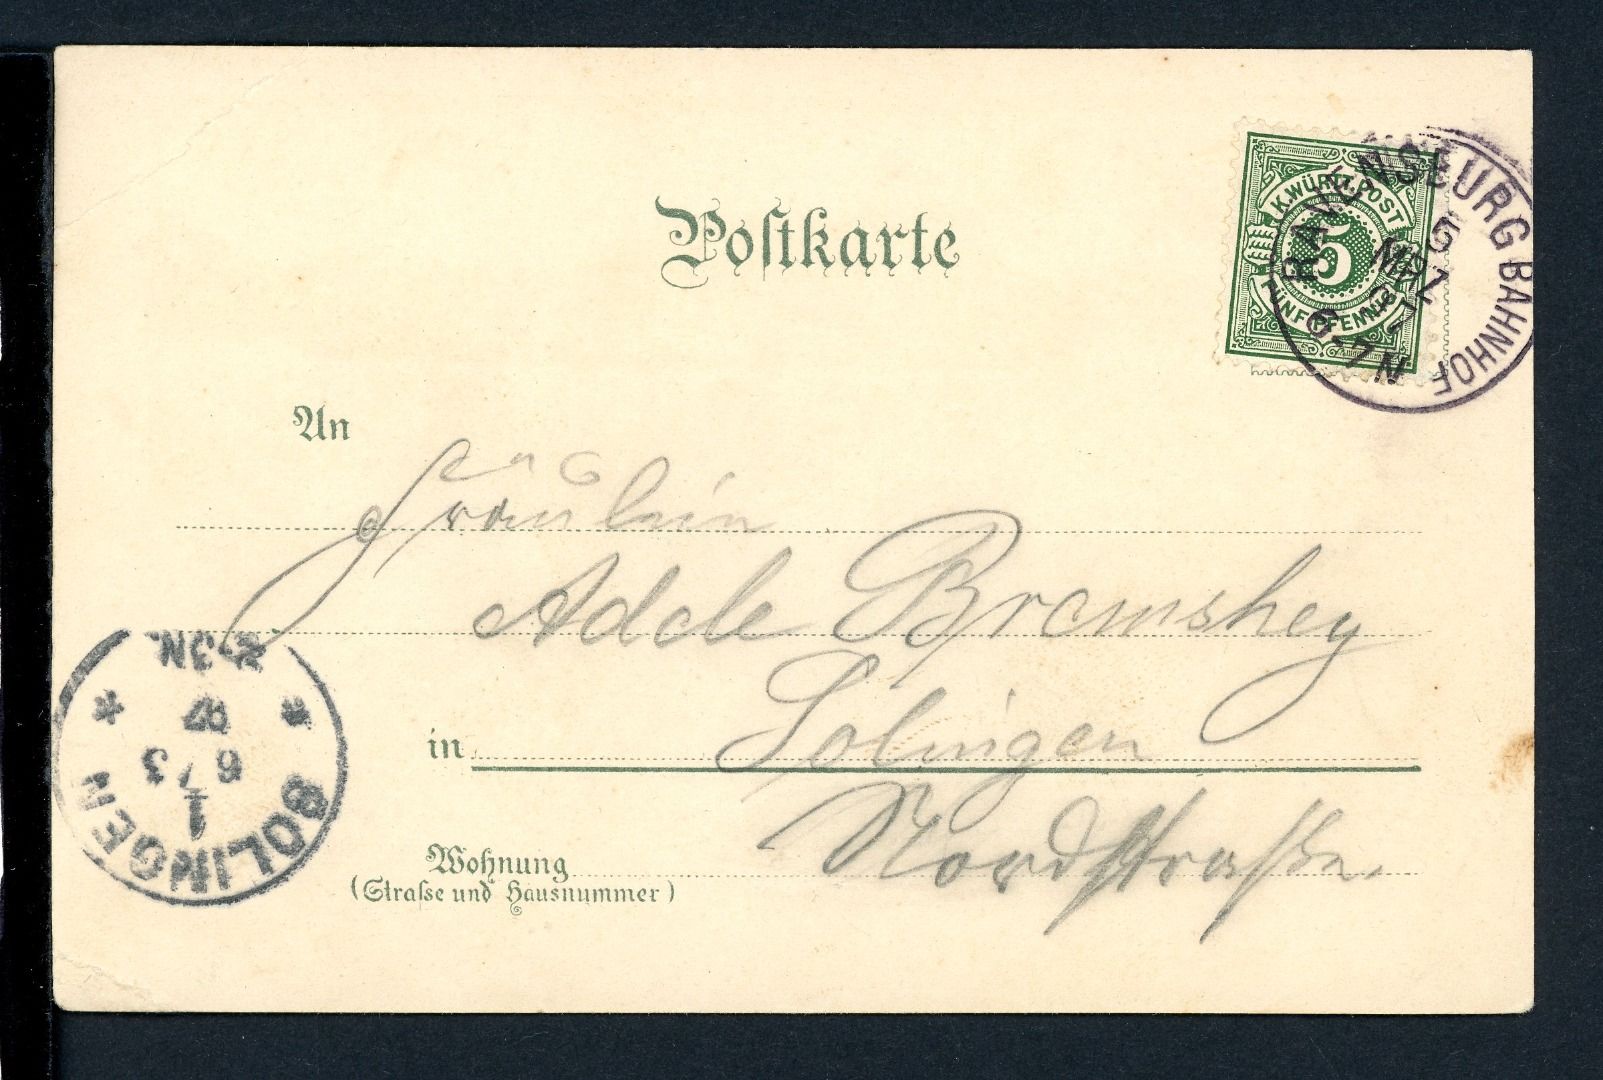 Postkarte
K. WÜRTT. POST
5
FÜNF PFENNIG
RAVENSBURG BAHNHOF
5
MRZ
97
6-7N
An
Fräulein
Adele Bremshey
in Solingen
Wohnung Nordstraße.
(Straße und Hausnummer)
SOLINGEN
1
6/3
97
2-3N.